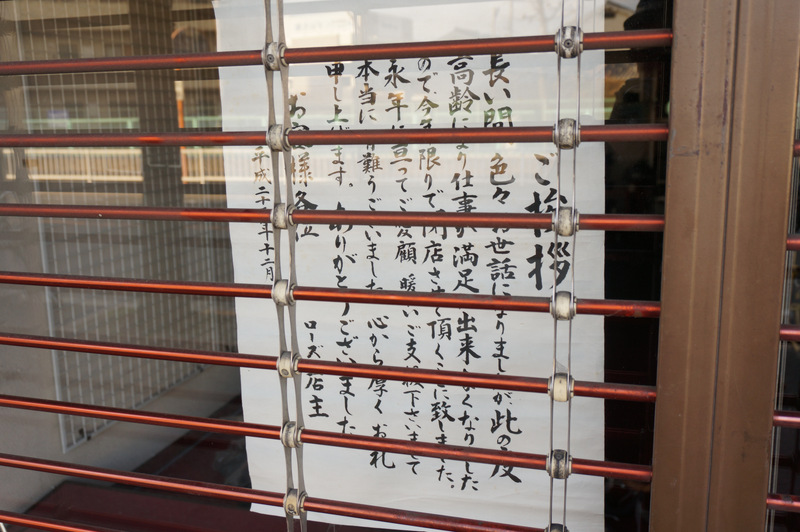 ご挨拶
長い間色々お世話になりましたが此の度
高齢により仕事が満足出来なくなりました
ので今年限りで閉店させて頂くことに致しました。
永年に亘ってご愛顧暖いご支援下さいまして
本当に有難うございました心から厚くお礼
申し上げます。ありがとうございました
お客様各位
ローズ店主
平成二十 年十二月